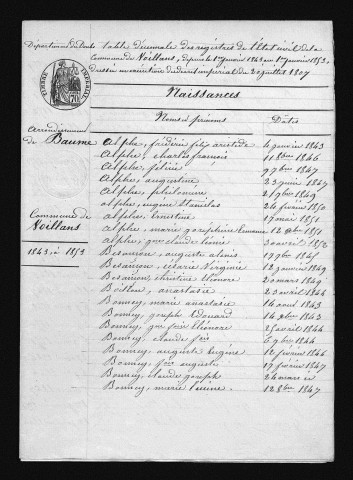 Département du Doubs
table décennale des registres de l'état civil de la
Commune de Voillans, depuis le 1er janvier 1843 au 1er janvier 1853,
dressée en exécution du décret impérial du 20 juillet 1807
TIMBRE IMPERIAL
70
Naissances
Noms et prénoms Dates
Arrondissement
de Baume
Commune de
Voillans
1843, à 1853
Alphe, frédéric félix aristide 4 janvier 1843
Alphe, charles françois 11 8bre 1846
Alphe, félicie 9 7bre 1847
Alphe, augustine 23 juin 1847
Alphe, philomine 1849
alphe, eugène Stanilas 24 février 1850
alphe, Ernestine 17 mai 1851
alphe, marie josephine 1851
alphe, claude louis 30 avril 1852
Besançon, auguste alexis 1845
Besançon, Virginie 12 janvier 1849
Besançon, christine Léonore 20 mars 1849
Boillon, anastasie 23 avril 1844
Bonney, marie anastasie 14 aout 1843
Bonney, joseph Edouard 14 9bre 1843
Bonney, Eléonore 25 avril 1844
Bonney, claude 6 9bre 1844
Bonney, auguste Eugène 12 février 1846
Bonney, auguste 17 février 1847
Bonney, claude joseph 24 mars id
Bonney, marie 12 8bre 1847